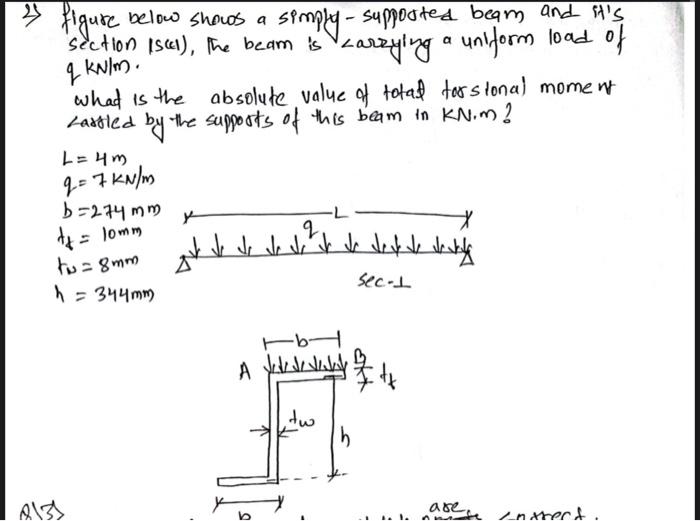 2) figure below shows a simply-supported beam and it's
section (sec1), The beam is carrying a uniform load of
q KN/m.
what is the absolute value of total torsional moment
carried by the supports of this beam in KN.m?
L = 4m
q = 7 KN/m
b = 274 mm
tf = 10mm
tw = 8mm
h = 344mm
L
q
sec-1
b
A
B
tf
tw
h
b
are
correct.